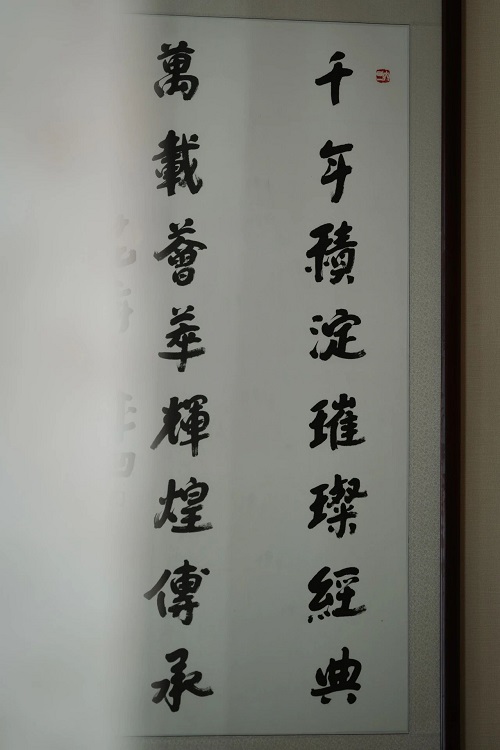 千年積淀璀璨經典
萬載薈華輝煌傳承